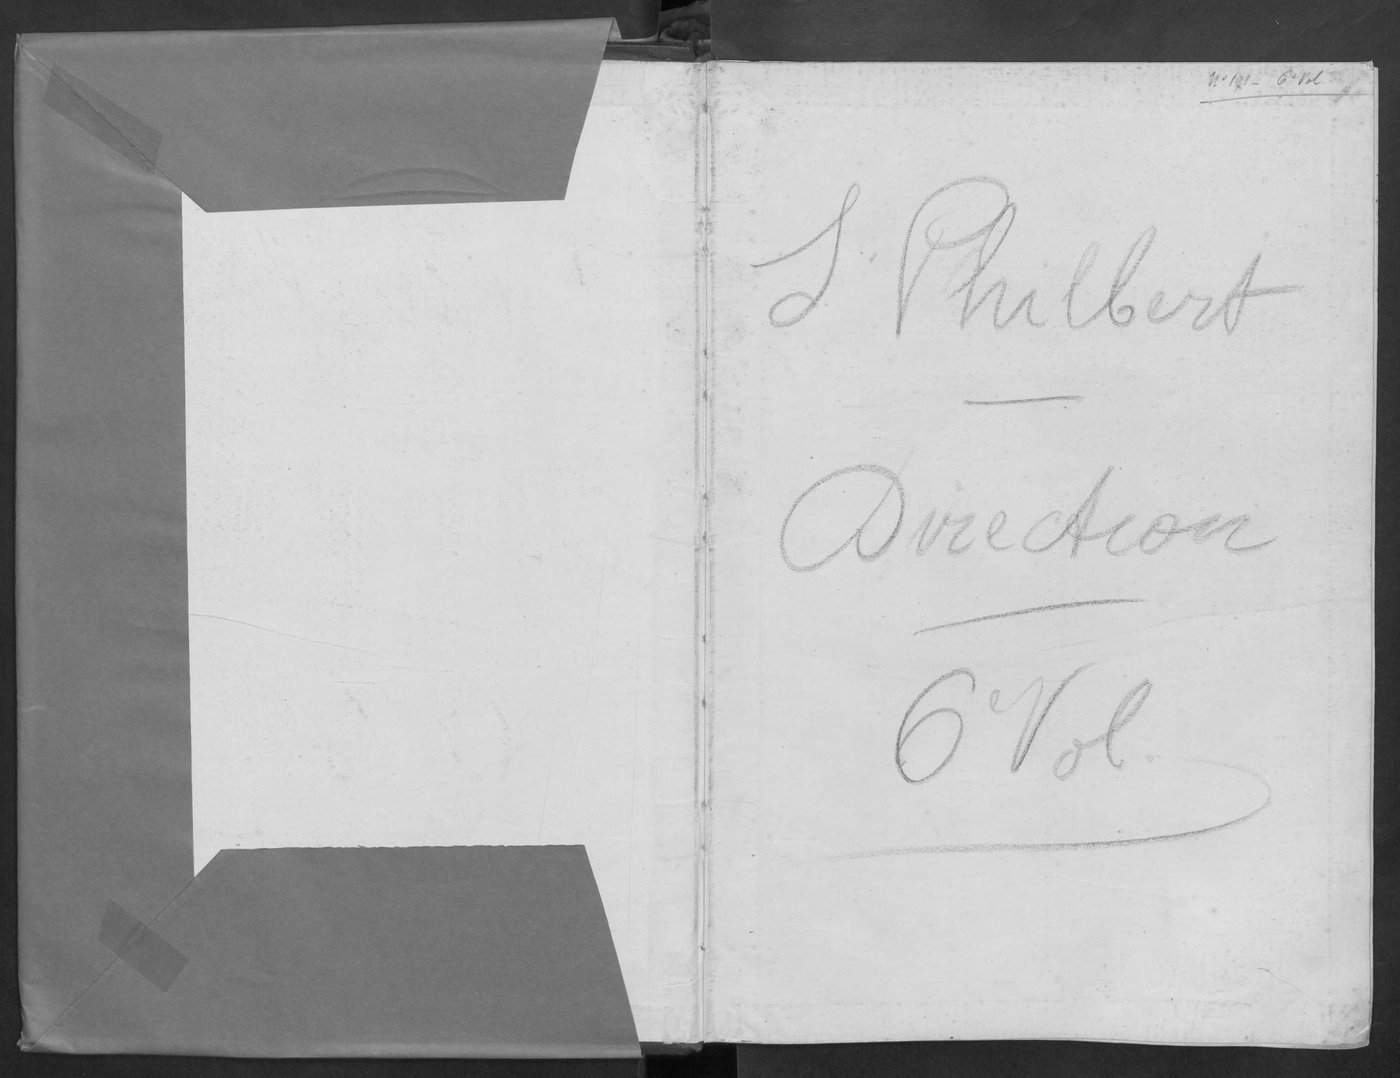 6e Vol.
S. Philbert
Direction
6e Vol.